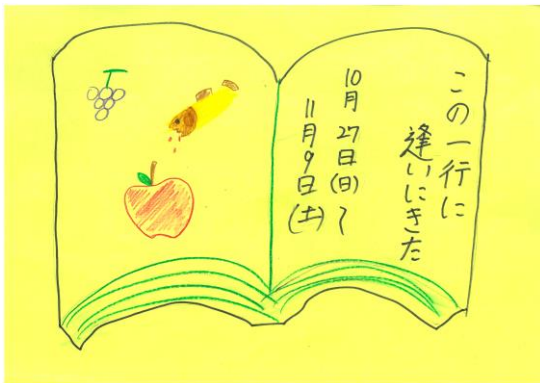 この一行に
逢いにきた
10月27日(日)〜
11月9日(土)